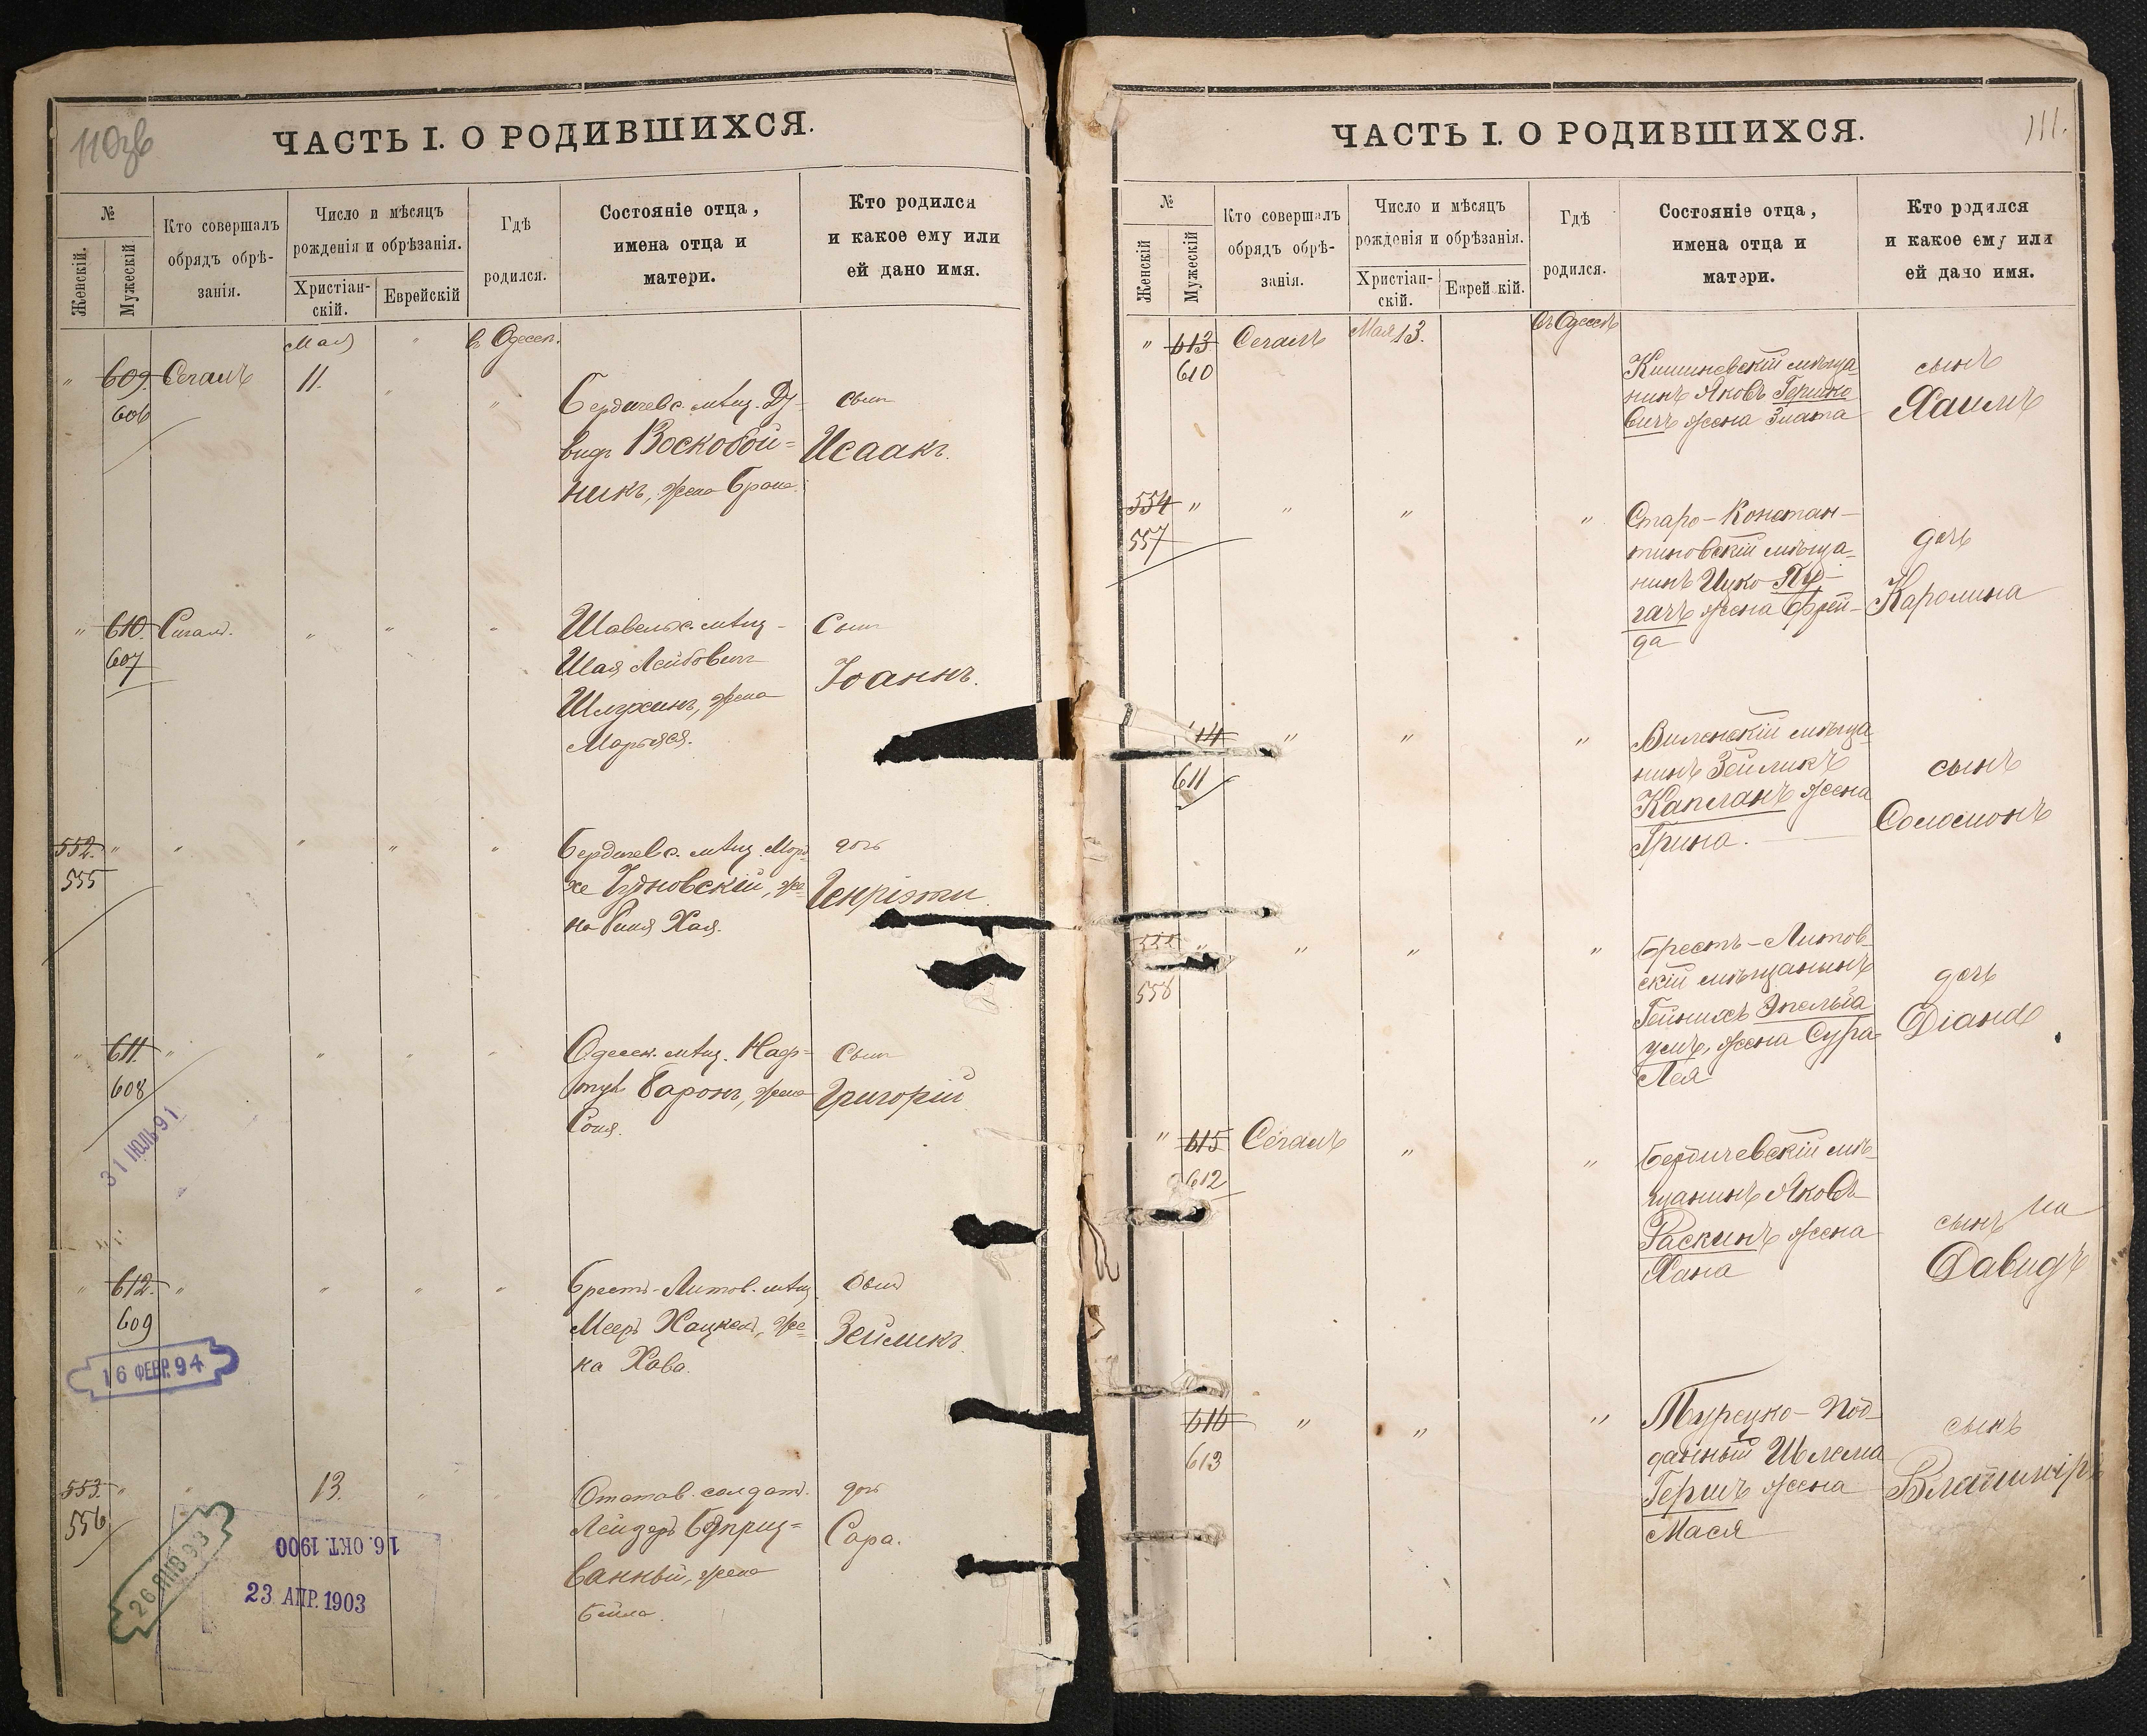 110об
ЧАСТЬ I. О РОДИВШИХСЯ.
№
Женскій.
Мужескій
Кто совершалъ
обрядъ обрѣ-
занія.
Число и мѣсяцъ
рожденія и обрѣзанія.
Христіан-
скій.
Еврейскій
Гдѣ
родился.
Состояніе отца,
имена отца и
матери.
Кто родился
и какое ему или
ей дано имя.
Мая " в Одессѣ.
" 609. Сегалъ 11. " "
606
Бердичевс. мѣщ. Да-
видъ Воскобой-
никъ, жена Брана.
сынъ
Исаакъ.
" 610. Сегалъ. " " "
607
Шавельс. мѣщ-
Шая Лейбовичъ
жена
Марьяся.
Сынъ
Іоаннъ.
552. " " " " "
555
Бердичевс. мѣщ. Морд-
хе Чудновскій, же-
на Хая.
дочь
Генріэти.
" 611. " " " "
608
Одесск. мѣщ. Наф-
тул Баронъ, жена
Соня.
Сынъ
Григорій
31 ІЮЛЬ 91
" 612. " " " "
609
Брестъ-Литов. мѣщ
Меер Хацкел, же-
на Хава.
Сынъ
Зейликъ.
16 ФЕВР. 94
553. " " 13. " "
556
Отстав. солдат.
Лейзеръ
ванный, жена
Бейла.
дочь
Сара.
26 ЯНВ 93
16. ОКТ. 1900
23 АПР. 1903
111.
ЧАСТЬ I. О РОДИВШИХСЯ.
№
Женскій
Мужескій
Кто совершалъ
обрядъ обрѣ-
занія.
Число и мѣсяцъ
рожденія и обрѣзанія.
Христіан-
скій.
Еврейскій.
Гдѣ
родился.
Состояніе отца,
имена отца и
матери.
Кто родился
и какое ему или
ей дано имя.
" 613 Сегалъ Мая 13. въ Одессѣ
610
Кишиневскій мѣща-
нинъ Яковъ Гершко
вичъ жена Злата
сынъ
Хаимъ
554 " " " "
557
Старо-Констан-
тиновскій мѣща-
нинъ Ицко Пу-
гачъ жена Фрей-
да
дочь
Каролина
14 " " "
611
Виленскій мѣща-
нинъ Зейликъ
Капланъ жена
Грина.
сынъ
Соломонъ
555 " " " "
558
Брестъ-Литов-
скій мѣщанинъ
Гейнихъ Эпельба
умъ, жена Сура-
Лея
дочь
Діана
" 615 Сегалъ " "
612
Бердичевскій мѣ-
щанинъ Яковъ
Раскинъ жена
Хана
сынъ на
Давидъ
616 " " "
613
Турецко-Под-
данный Шлема
Гершъ жена
Мася
сынъ
Владимиръ